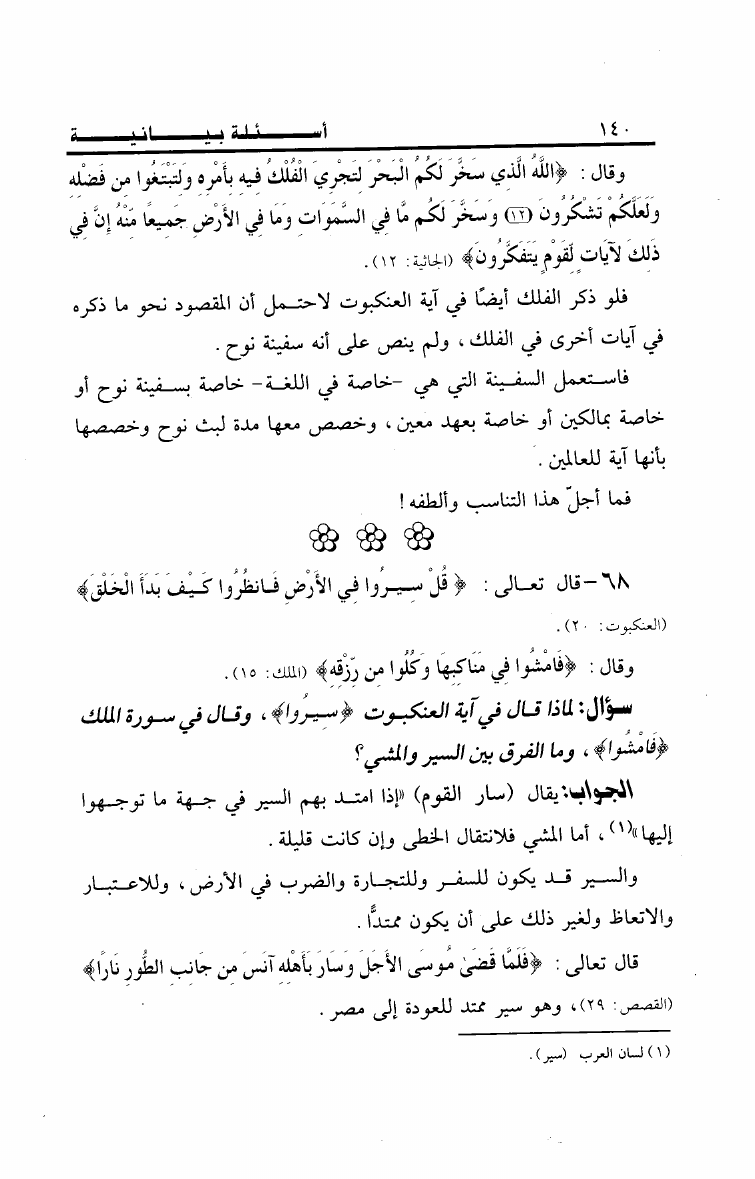 ١٤٠ أسئلة بيانية
وقال : ﴿اللَّهُ الَّذِي سَخَّرَ لَكُمُ الْبَحْرَ لِتَجْرِيَ الْفُلْكُ فِيهِ بِأَمْرِهِ وَلِتَبْتَغُوا مِن فَضْلِهِ
وَلَعَلَّكُمْ تَشْكُرُونَ (١٢) وَسَخَّرَ لَكُم مَّا فِي السَّمَوَاتِ وَمَا فِي الأَرْضِ جَمِيعًا مِّنْهُ إِنَّ فِي
ذَلِكَ لآيَاتٍ لِّقَوْمٍ يَتَفَكَّرُونَ﴾ (الجاثية: ١٢).
فلو ذكر الفلك أيضًا في آية العنكبوت لاحتمل أن المقصود نحو ما ذكره
في آيات أخرى في الفلك ، ولم ينص على أنه سفينة نوح .
فاستعمل السفينة التي هي -خاصة في اللغة- خاصة بسفينة نوح أو
خاصة بمالكين أو خاصة بعهد معين ، وخصص معها مدة لبث نوح وخصصها
بأنها آية للعالمين .
فما أجلّ هذا التناسب وألطفه !
٦٨ -قال تعالى : ﴿ قُلْ سِيرُوا فِي الأَرْضِ فَانظُرُوا كَيْفَ بَدَأَ الْخَلْقَ﴾
(العنكبوت: ٢٠).
وقال : ﴿فَامْشُوا فِي مَنَاكِبِهَا وَكُلُوا مِن رِّزْقِهِ﴾ (الملك: ١٥).
سؤال: لماذا قال في آية العنكبوت ﴿سِيرُوا﴾ ، وقال في سورة الملك
﴿فَامْشُوا﴾ ، وما الفرق بين السير والمشي؟
الجواب: يقال (سار القوم) «إذا امتد بهم السير في جهة ما توجهوا
إليها»(١) ، أما المشي فلانتقال الخطى وإن كانت قليلة .
والسير قد يكون للسفر وللتجارة والضرب في الأرض ، وللاعتبار
والاتعاظ ولغير ذلك على أن يكون ممتدًّا .
قال تعالى : ﴿فَلَمَّا قَضَىٰ مُوسَى الأَجَلَ وَسَارَ بِأَهْلِهِ آنَسَ مِن جَانِبِ الطُّورِ نَارًا﴾
(القصص: ٢٩)، وهو سير ممتد للعودة إلى مصر .
(١) لسان العرب (سير).